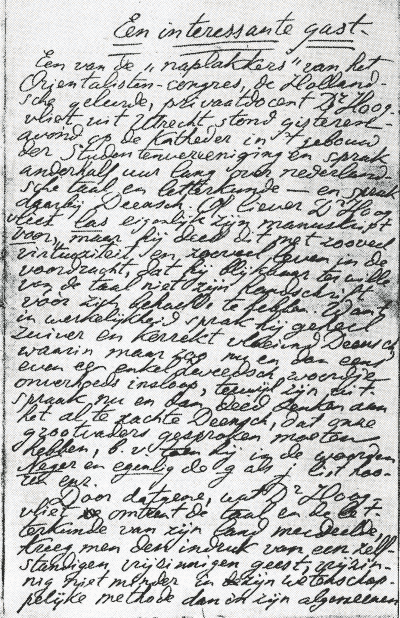 Een interessante gast.
Een van de "naplakkers" van het
Orientalisten-congres, de Holland-
sche geleerde, privaatdocent Dr Hoog-
vliet uit Utrecht stond gisteren-
avond op de katheder in 't gebouw
der Studentenvereeniging en sprak
anderhalf uur lang over nederland-
sche taal en letterkunde — en sprak
daarbij Deensch. Of liever Dr Hoog
vliet las eigenlijk zijn manuskript
voor, maar hij deed dit met zooveel
virtuositeit en zooveel leven in de
voordracht, dat hij blijkbaar ter wille
van de taal niet zijn handschrift
voor zich behoefde te hebben. Want
in werkelijkheid sprak hij geheel
zuiver en korrekt vloeiend Deensch
waarin maar zag nu en dan eens
even een enkel zweedsch woordje
onverhoeds insloop, terwijl zijn uit-
spraak nu en dan deed denken aan
het al te zachte Deensch, dat onze
grootvaders gesproken moeten
hebben, b.v. toen hij in de woorden
Neger en egenlig de g als j liet hoo-
ren enz.
Door datgene, wat Dr Hoog-
vliet omtrent de taal en de let-
terkunde van zijn land meedeelde,
kreeg men den indruk van een zelf-
standigen vrijzinnigen geest, vrijzin-
nig niet minder in zijn wetenschap-
pelijke methode dan in zijn algemeenen